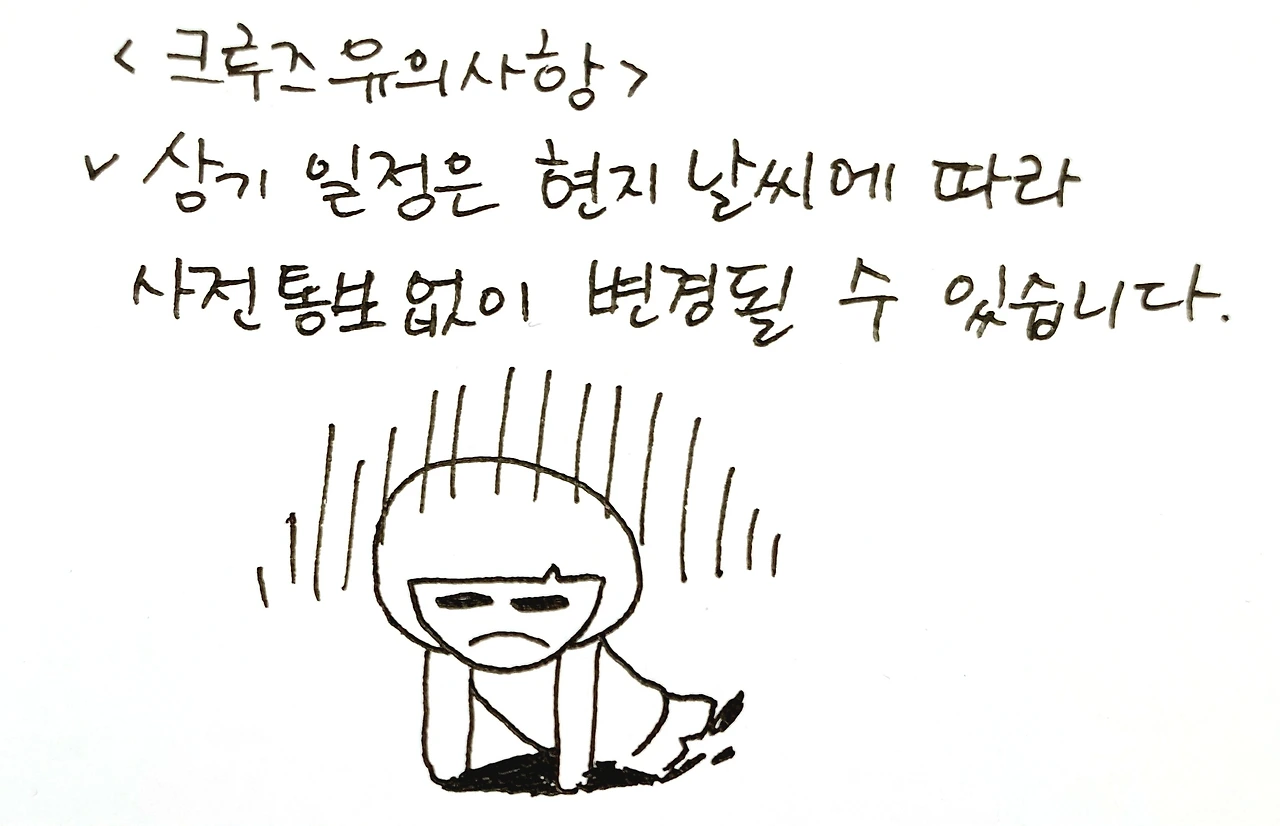 <크루즈유의사항>
✓ 상기 일정은 현지 날씨에 따라
사전통보없이 변경될 수 있습니다.